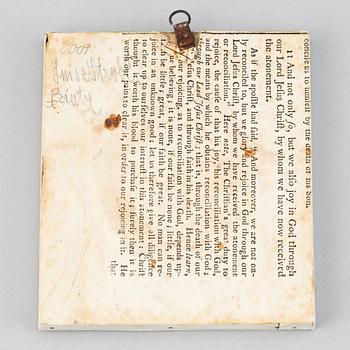 concile us to himself by the death of his son.
11 And not only so, but we also joy in God through
our Lord Jesus Christ, by whom we have now received
the atonement.
As if the apostle had said, "And moreover, we are not on-
ly reconciled to, but we glory and rejoice in God through our
Lord Jesus Christ, by whom we have received the atonement
or reconciliation." Here note, The Christian's great duty to
rejoice, the cause of that his joy, his reconciliation with God,
and the means by which he obtains reconciliation with God;
through our Lord Jesus Christ; that is, through the death of our
Jesus Christ, and through faith in his death. Hence learn,
our rejoicing, as to reconciliation with God, depends up-
our believing; it is none, if our faith be none; little, if our
be little; great, if our faith be great. No man can re-
joice in an unknown good; let us therefore give all diligence
to clear up to ourselves our interest in this atonement; Christ
thought it worth his blood to purchase it; surely then it is
worth our pains to clear it, in order to our rejoicing in it. He
that